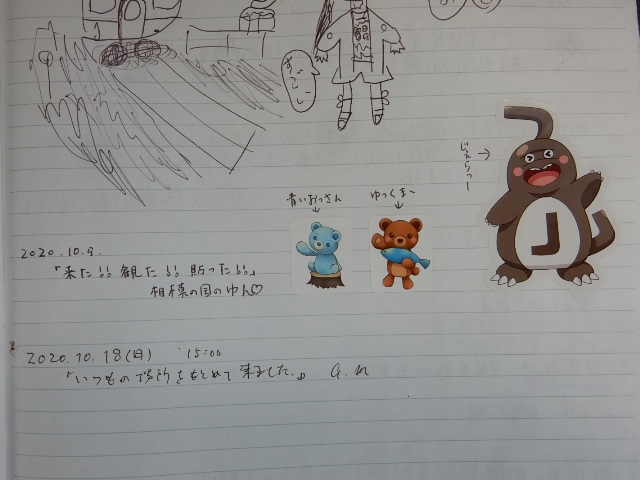 すごーい
じぇらっしー
青いおっさん
ゆっくまー
J
2020.10.9.
「来た!! 観た!! 貼った!!」
相模の国のゆん♡
2020.10.18(日) 15:00
「いつもの場所をもとめて来ました。」 a.m